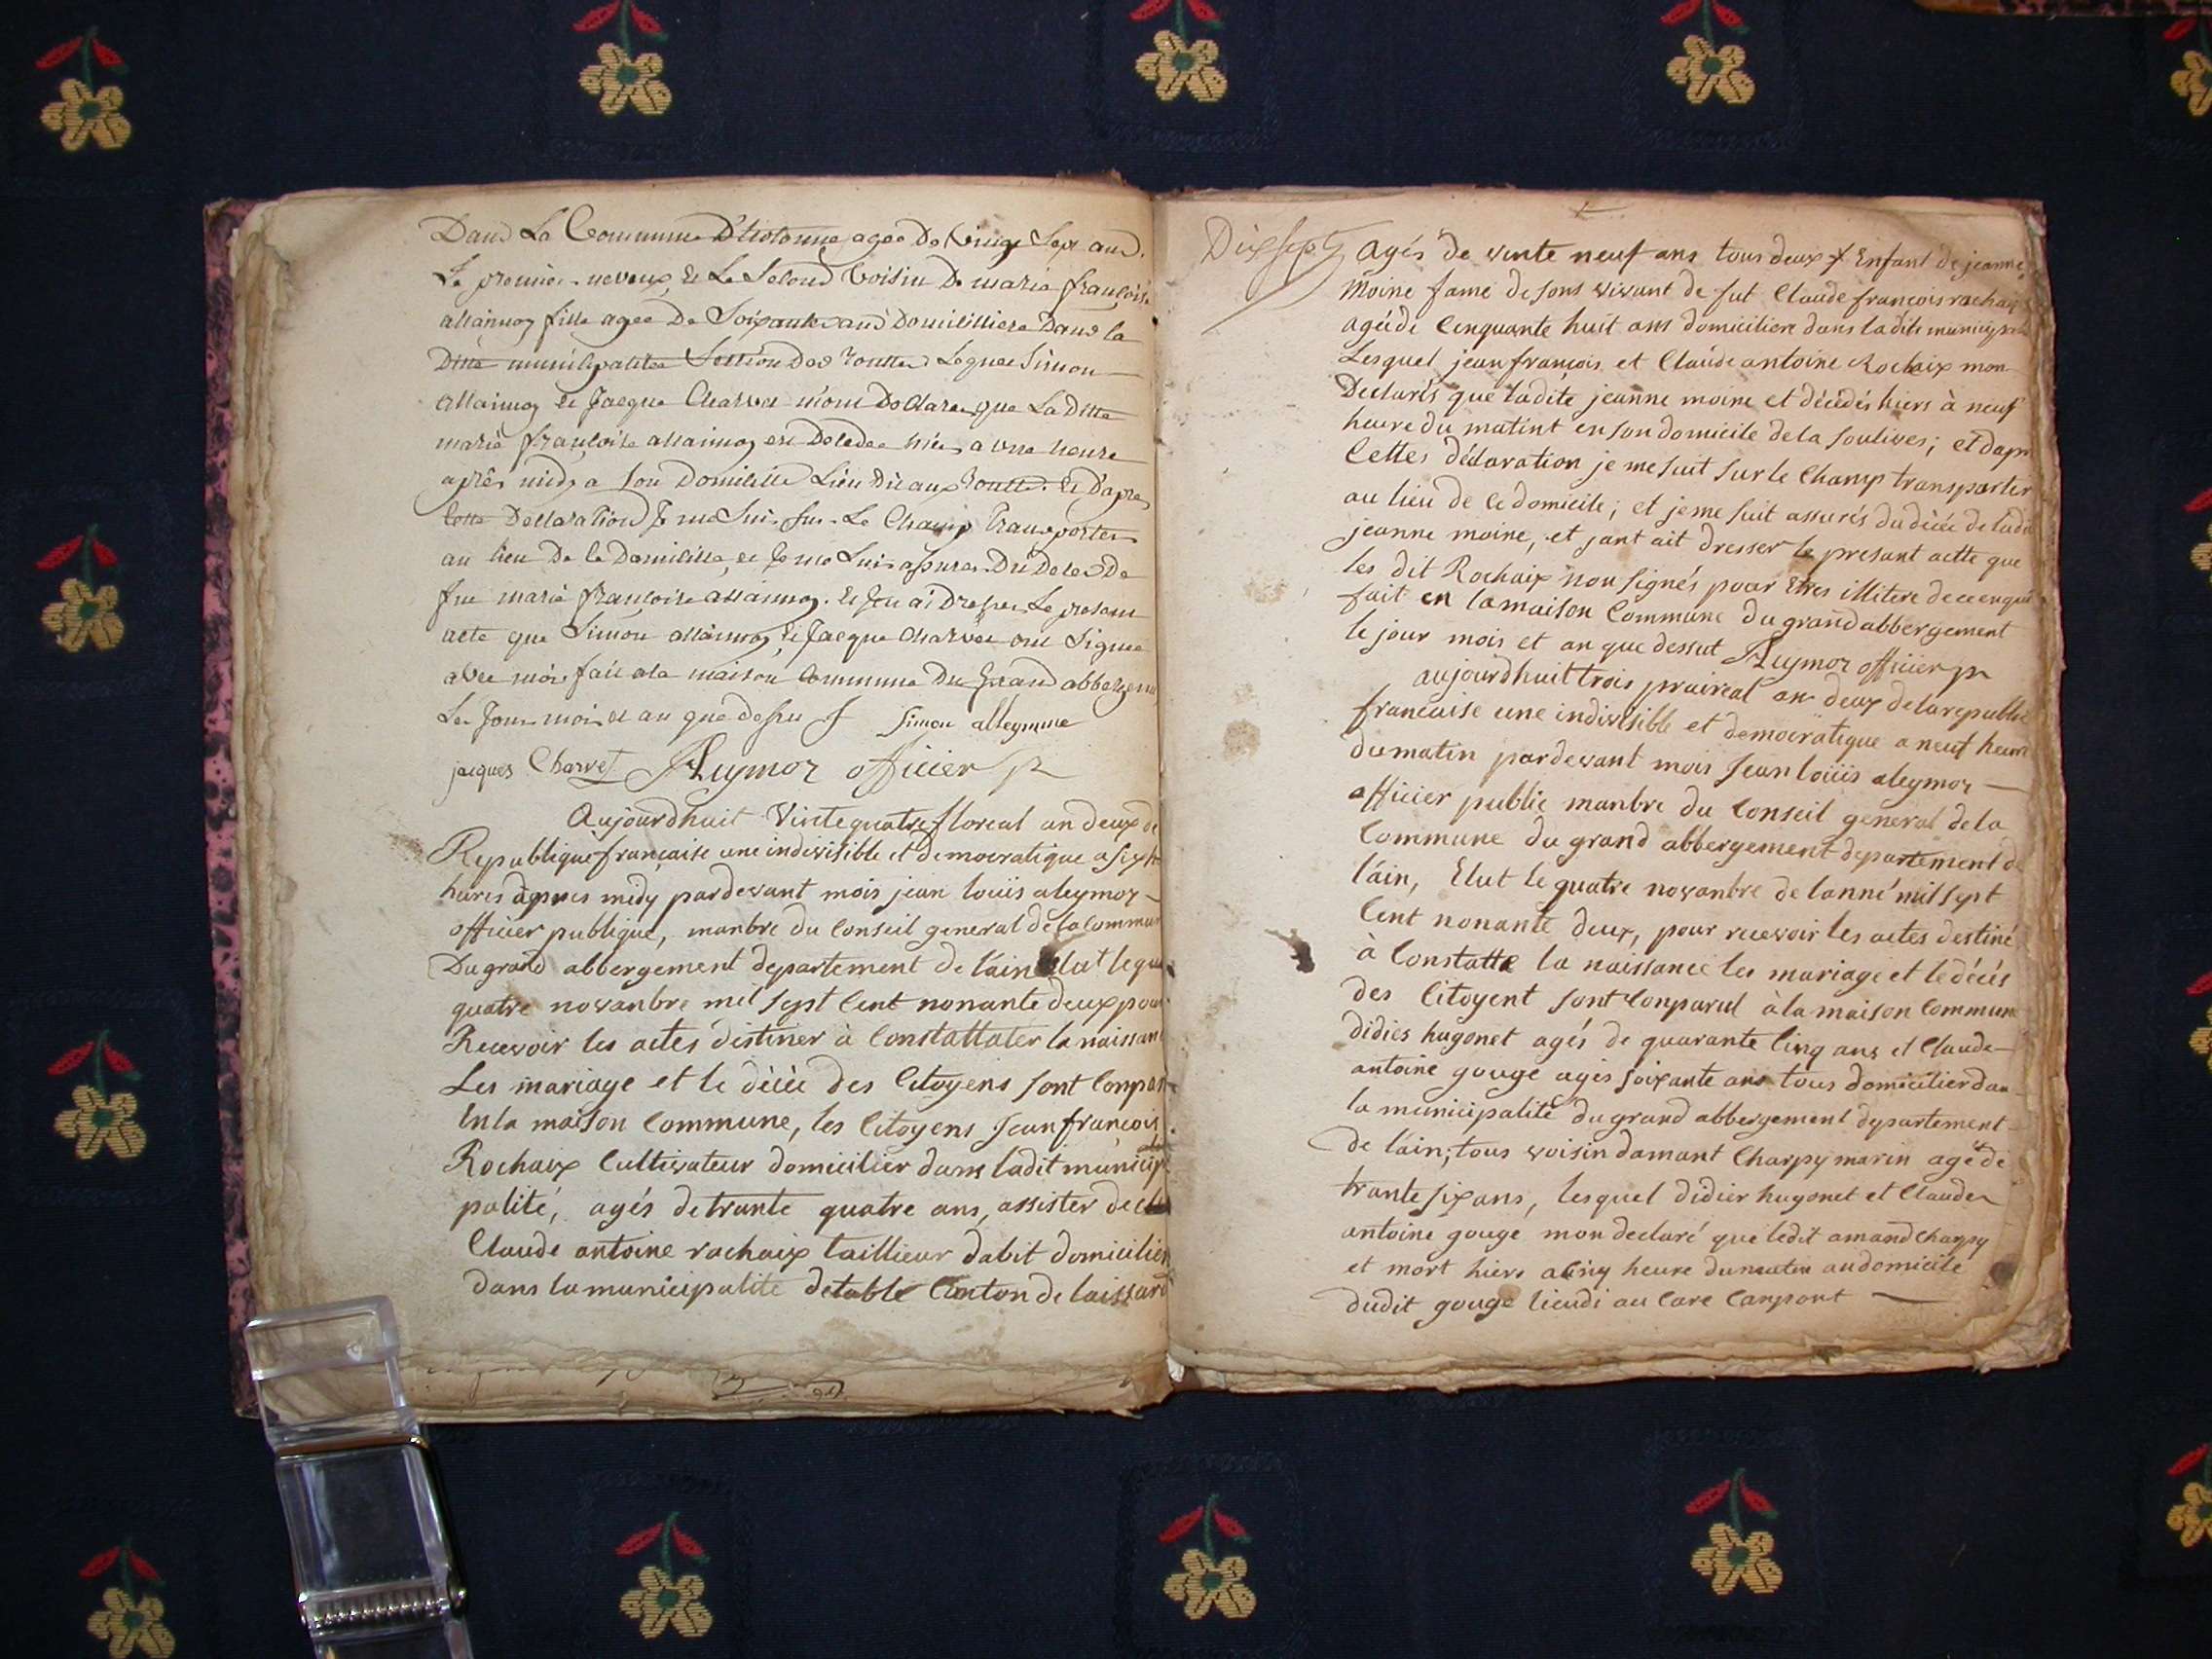 Dans La Commune D'hotonne agee De Vingt Sept ans.
Le premier neveux, Et Le Second Voisin De marie françoise
allaimoz fille agee De Soixante ans Domicilliere Dans la
Ditte municipalitee Section Des Routtes Lequel Simon
allaimoz Et Jacque Charvet m'ont Declare que La Ditte
marie françoise allaimoz est Decedee hier a une heure
après midy a Son Domicille Lieu Dit aux Routtes. Et D'apres
Cette Declaration Je me Suis Sur Le Champ Transporter
au lieu De Ce Domicille, et Je me Suis assurer Du Deces De
fue marie françoise allaimoz. Et J'en ai Dresser Le present
acte que Simon allaimoz, Et Jacque Charvet ont Signee
avec moi fait a la maison Commune Du Grand abbergem
Les Jour mois et an que dessu Simon alleymme
jacques Charvet Aleymoz officier p
Aujourdhuit Vinte quatre floreal an deux de
Republique française une indivisible et democratique a six h
hures apres midy pardevant mois jean louiis aleymoz
officier publique, manbre du Conseil general de la Commun
Du grand abbergement departement de lain Elut le qu
quatre novanbre mil sept Cent nonante deux pour
Recevoir les actes destiner à Constattater la naissan
Les mariage et le décée des Citoyens sont Conpar
En la maison Commune, les Citoyens Jean françois
Rochaix Cultivateur domicilier dans ladit municip
palité, agés de trante quatre ans, assister de
Claude antoine rochaix taillieur dabit domicilier
dans la municipalite detable Canton de laissard
Dix sept
agés de vinte neuf ans tous deux Enfant de jeanne
moine fame de sons vivant de fut Claude françois rochaix
agéde Cinquante huit ans domiciliere dans ladite municip
Lesquel jean françois et Claude antoine Rochaix mon
Declarés que ladite jeanne moine et décédés hiers à neuf
heure du matint en son domicile de la soulives; et dapr
Cettes déclaration je me suit sur le Champ transporter
au lieu de ce domicile; et je me suit assurés du décée de lad
jeanne moine, et jant ait dresser le presant actte que
les dit Rochaix non signés pour Etres illitere de ce enqui
fait en la maison Commune du grand abbergement
le jour mois et an que dessut Aleymoz officier p
aujourdhuit trois praireal an deux de la republi
francaise une indivisible et democratique a neuf heure
du matin pardevant mois Jean louiis aleymoz
officier public manbre du Conseil general de la
Commune du grand abbergement departement de
l'ain, Elut le quatre novanbre de lanné mil sept
Cent nonante deux, pour recevoir les actes destiné
à Constatte la naissance les mariage et le décés
des Citoyent sont Conparut à la maison Commune
didies hugonet agés de quarante Cinq ans et Claude
antoine gouge agés soixante ans tous domicilier dan
la municipalité du grand abbergement departement
de lain; tous voisin damant Charpy marin agé de
trante six ans, lesquel didier hugonet et Claude
antoine gouge mon declaré que ledit amand Charpy
et mort hiers a Cinq heure du matin au domicile
dudit gouge lieudi au Care Canpont